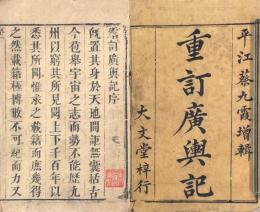 平江蔡九霞增輯
重訂廣輿記
大文堂梓行
訂廣輿記序
置其身於天地間詎無囊括古
今苞舉宇宙之志而勢不能歷九
州以窮其所見閱上下千百年以
悉其所聞惟承之載籍而庶幾得
之然載籍極博散不可紀而力又